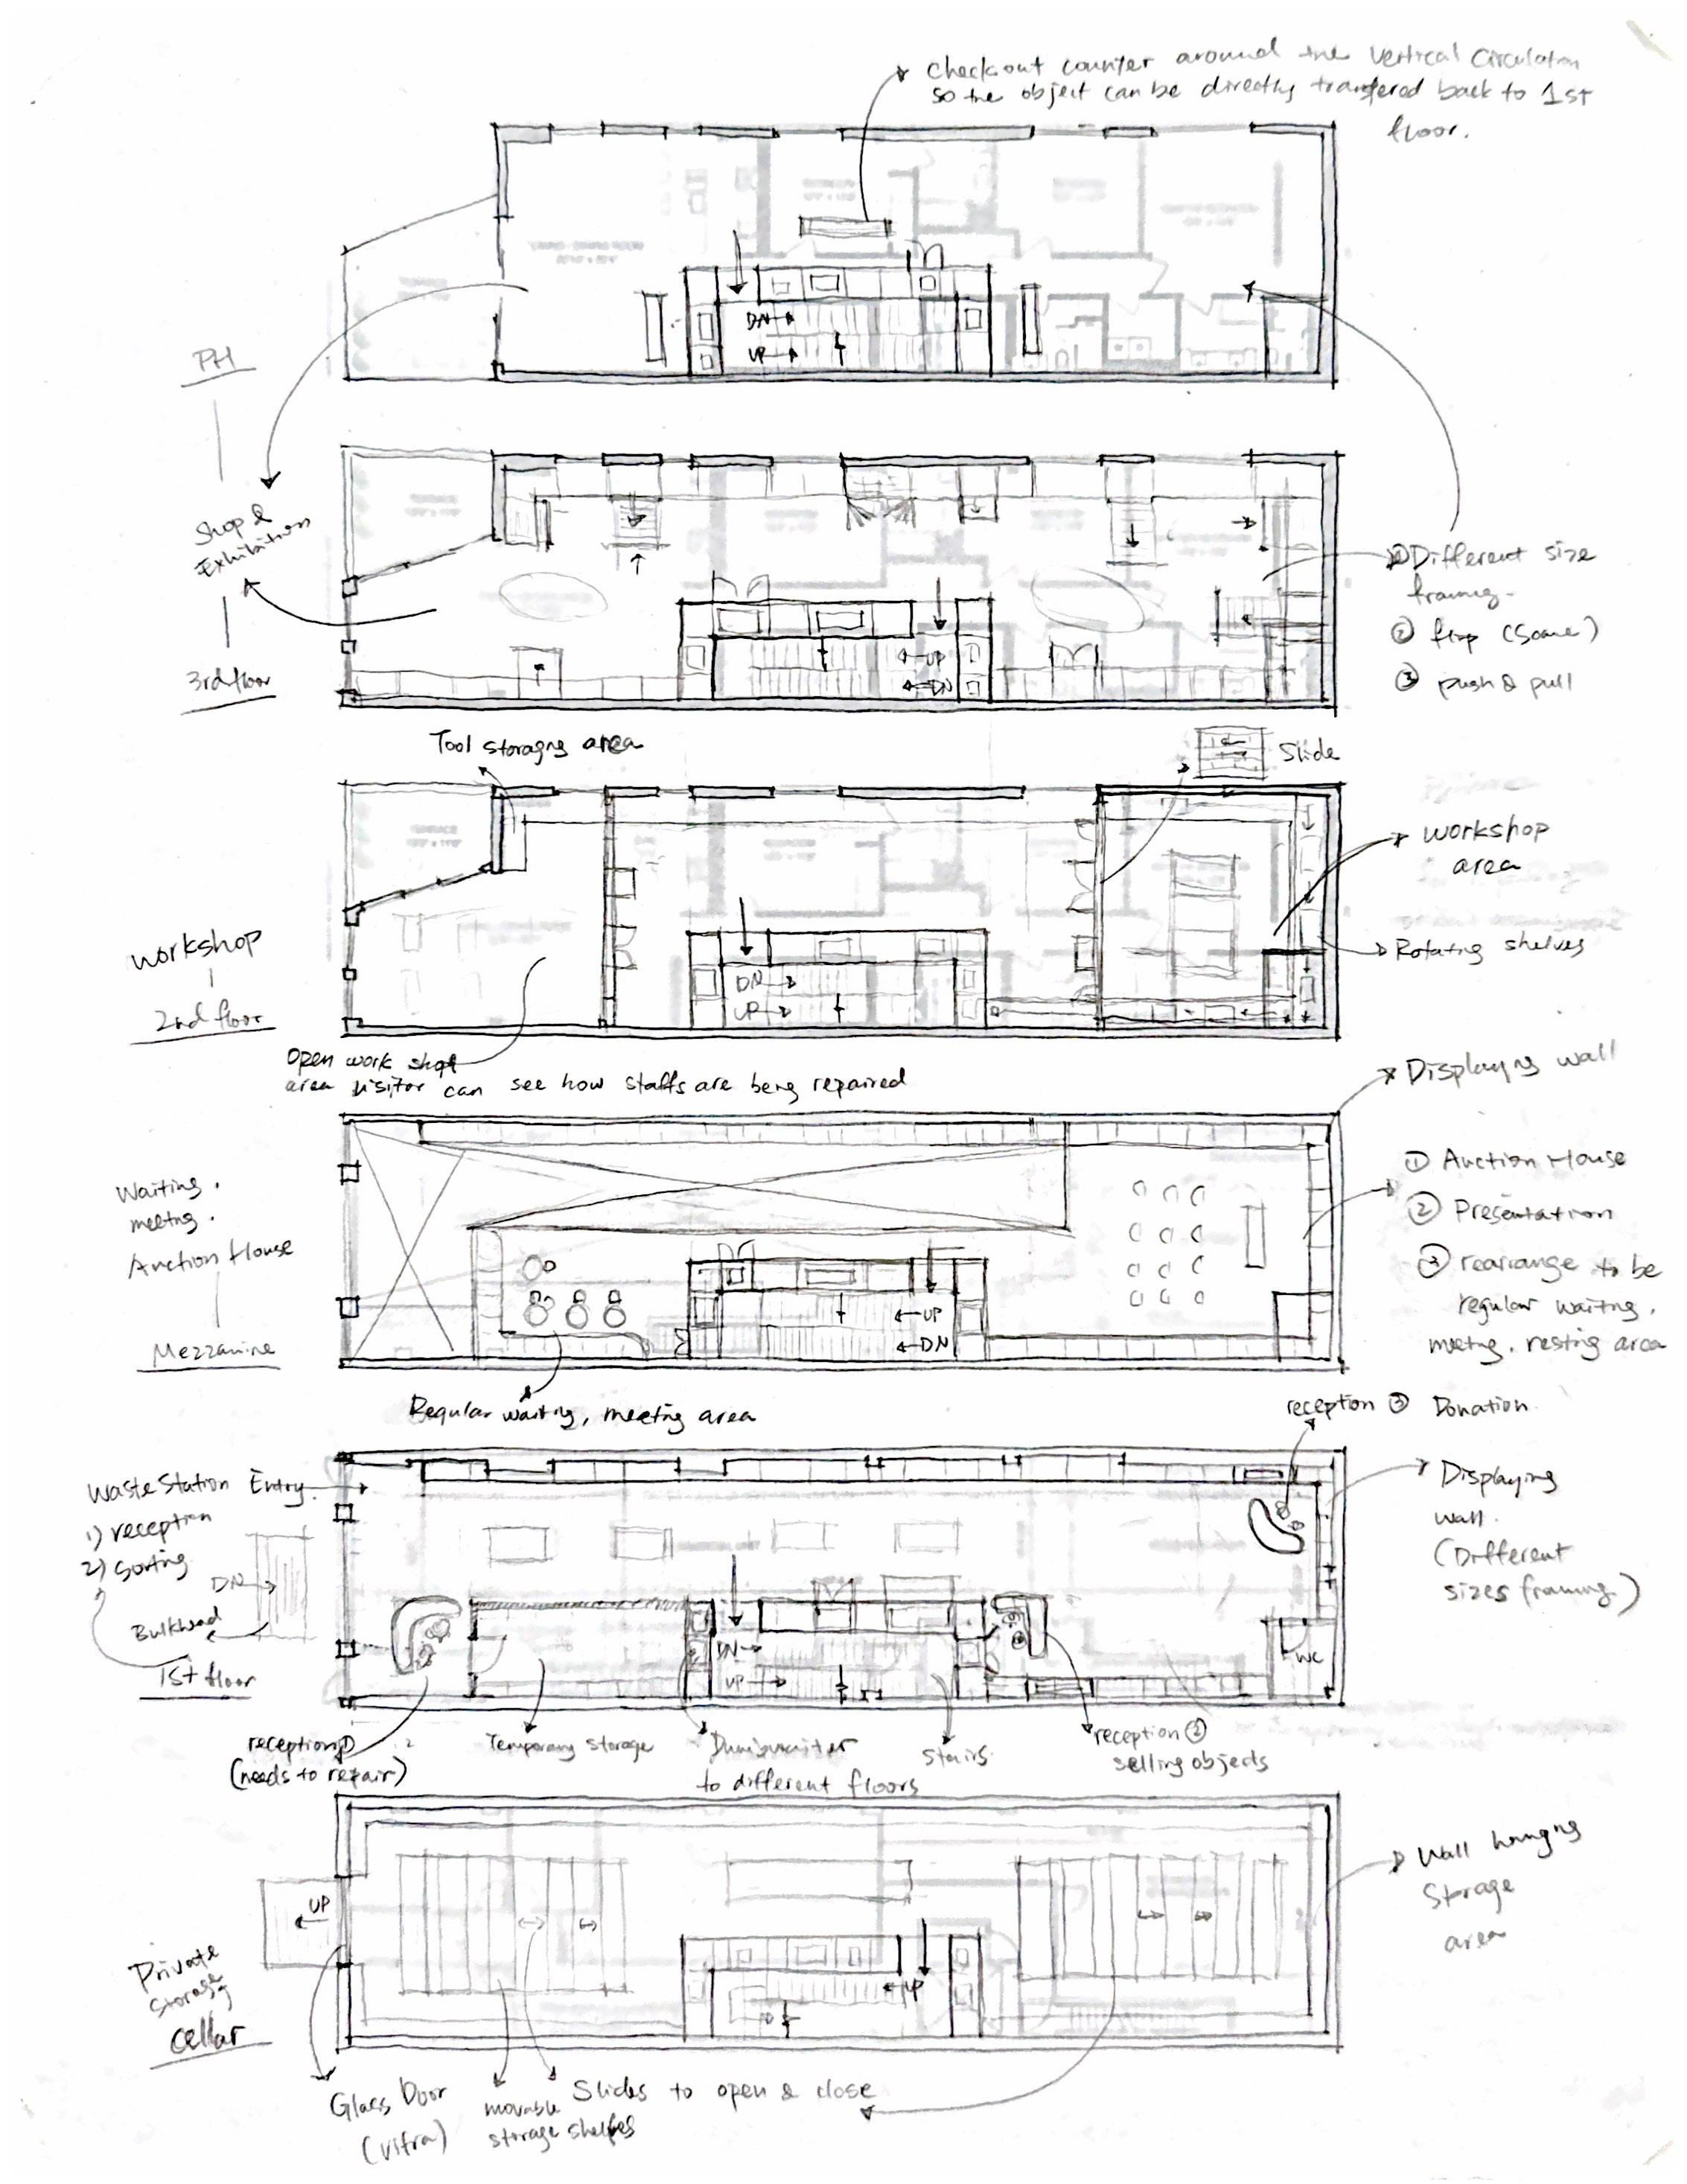 Checkout counter around the vertical circulation
so the object can be directly transfered back to 1st
floor.
DN
UP
PH
Shop &
Exhibition
3rd floor
UP
DN
① Different size
framing.
② flip (some)
③ push & pull
Tool storaging area
Slide
Workshop
area
Rotating shelves
DN
UP
Workshop
2nd floor
Open work shop
area visitor can see how staffs are being repaired
Displaying wall
Waiting.
meeting.
Auction House
Mezzanine
① Auction House
② Presentation
③ rearange to be
regular waiting.
meeting. resting area
UP
DN
Regular waiting, meeting area
reception ③ Donation
Waste Station Entry.
1) reception
2) Sorting
DN
Bulkhead
1st floor
Displaying
wall.
(Different
sizes framing.)
DN
UP
WC
reception ①
(needs to repair)
Temporary storage
Dumbwaiter
to different floors
Stairs
reception ②
selling objects
UP
UP
Private
Storage
Cellar
Wall hanging
Storage
area
Glass Door
(vitra)
movable
storage shelfes
Slides to open & close